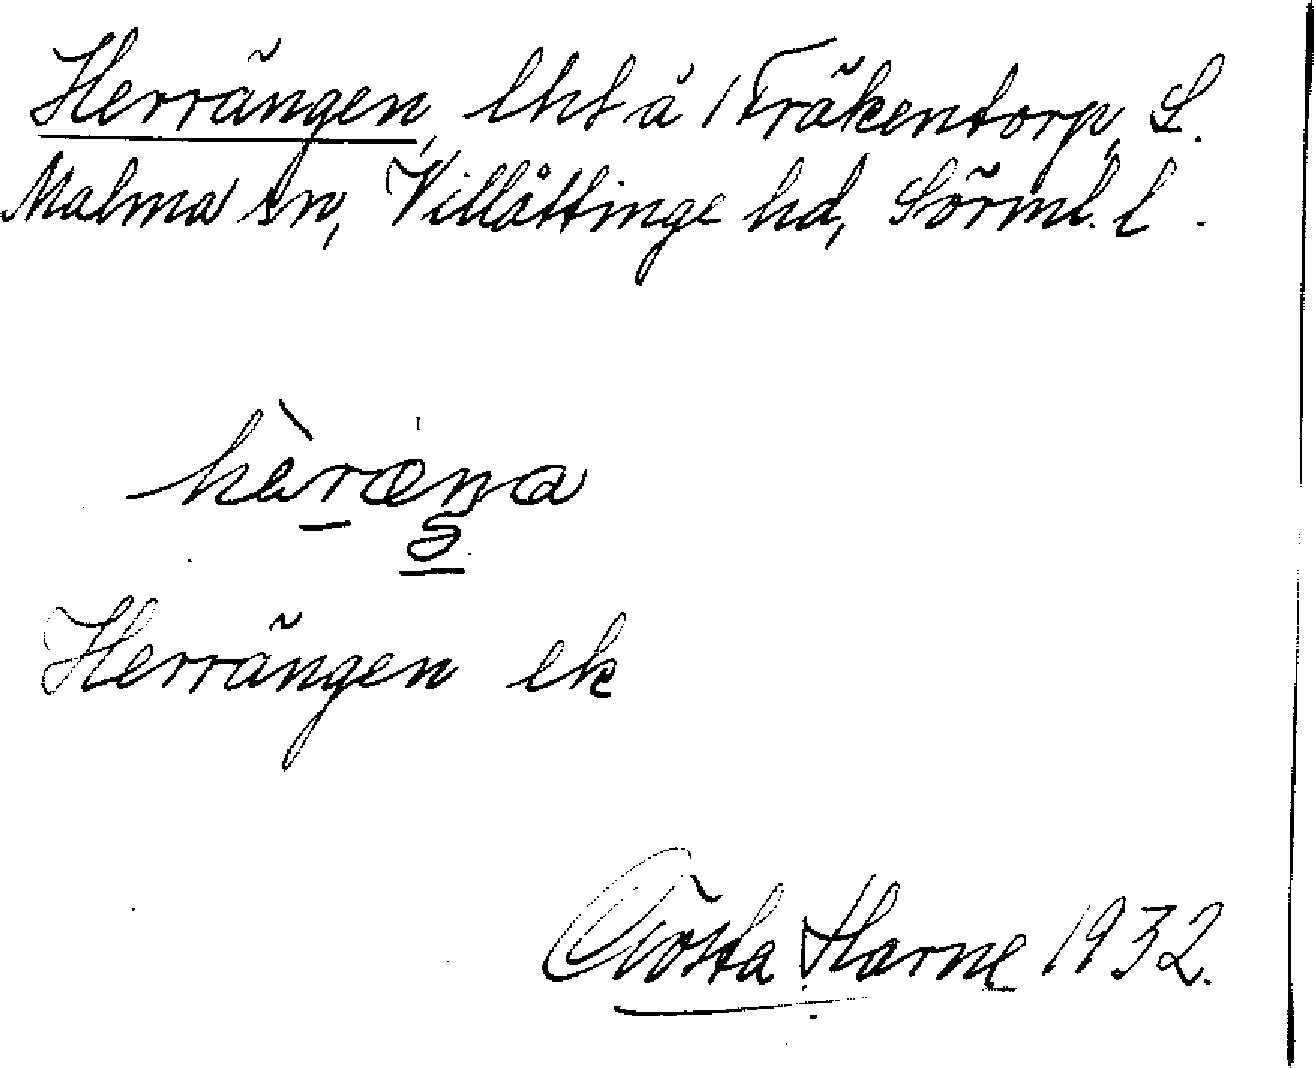 Herrängen, lht å Fräkentorp, L.
Malma sn, Villåttinge hd, Sörml. l.
hèræŋa
Herrängen ek
Gösta Harne 1932.